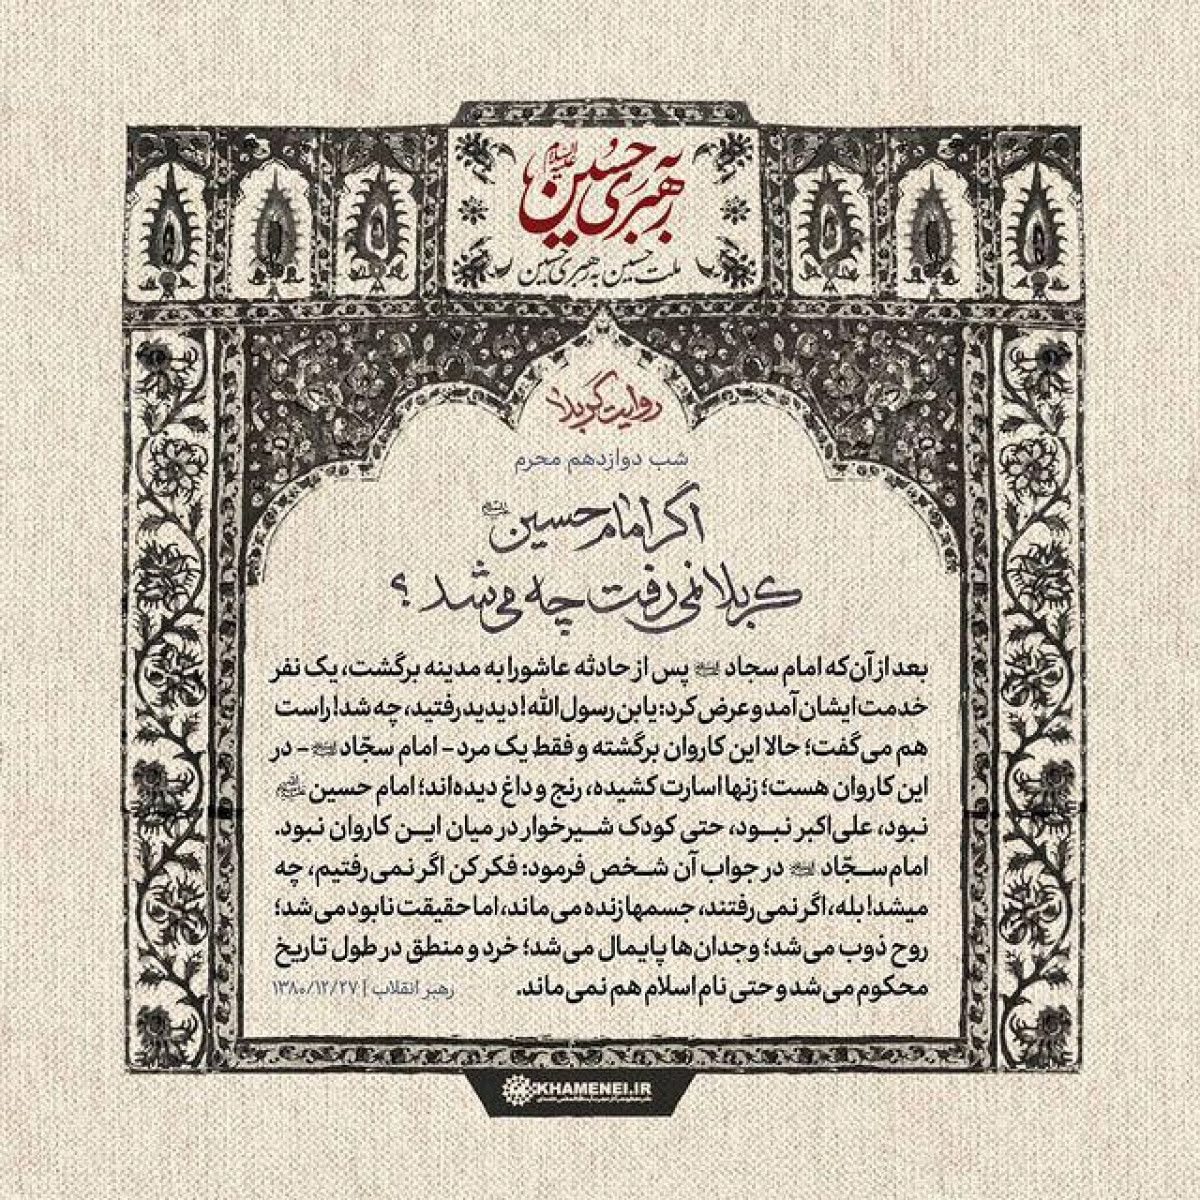 به رهبری حسین علیه‌السلام
ملت حسین به رهبری حسین
روایت کربلا
شب دوازدهم محرم
اگر امام حسین
کربلا نمی‌رفت چه می‌شد؟
بعد از آن که امام سجاد علیه‌السلام پس از حادثه عاشورا به مدینه برگشت، یک نفر
خدمت ایشان آمد و عرض کرد: یابن رسول الله! دیدید رفتید، چه شد! راست
هم می‌گفت؛ حالا این کاروان برگشته و فقط یک مرد - امام سجّاد علیه‌السلام - در
این کاروان هست؛ زنها اسارت کشیده، رنج و داغ دیده‌اند؛ امام حسین علیه‌السلام
نبود، علی‌اکبر نبود، حتی کودک شیرخوار در میان این کاروان نبود.
امام سجّاد علیه‌السلام در جواب آن شخص فرمود: فکر کن اگر نمی‌رفتیم، چه
میشد! بله، اگر نمی‌رفتند، جسمها زنده می‌ماند، اما حقیقت نابود می‌شد؛
روح ذوب می‌شد؛ وجدان‌ها پایمال می‌شد؛ خرد و منطق در طول تاریخ
محکوم می‌شد و حتی نام اسلام هم نمی‌ماند.
رهبر انقلاب | ۱۳۸۰/۱۲/۲۷
KHAMENEI.IR